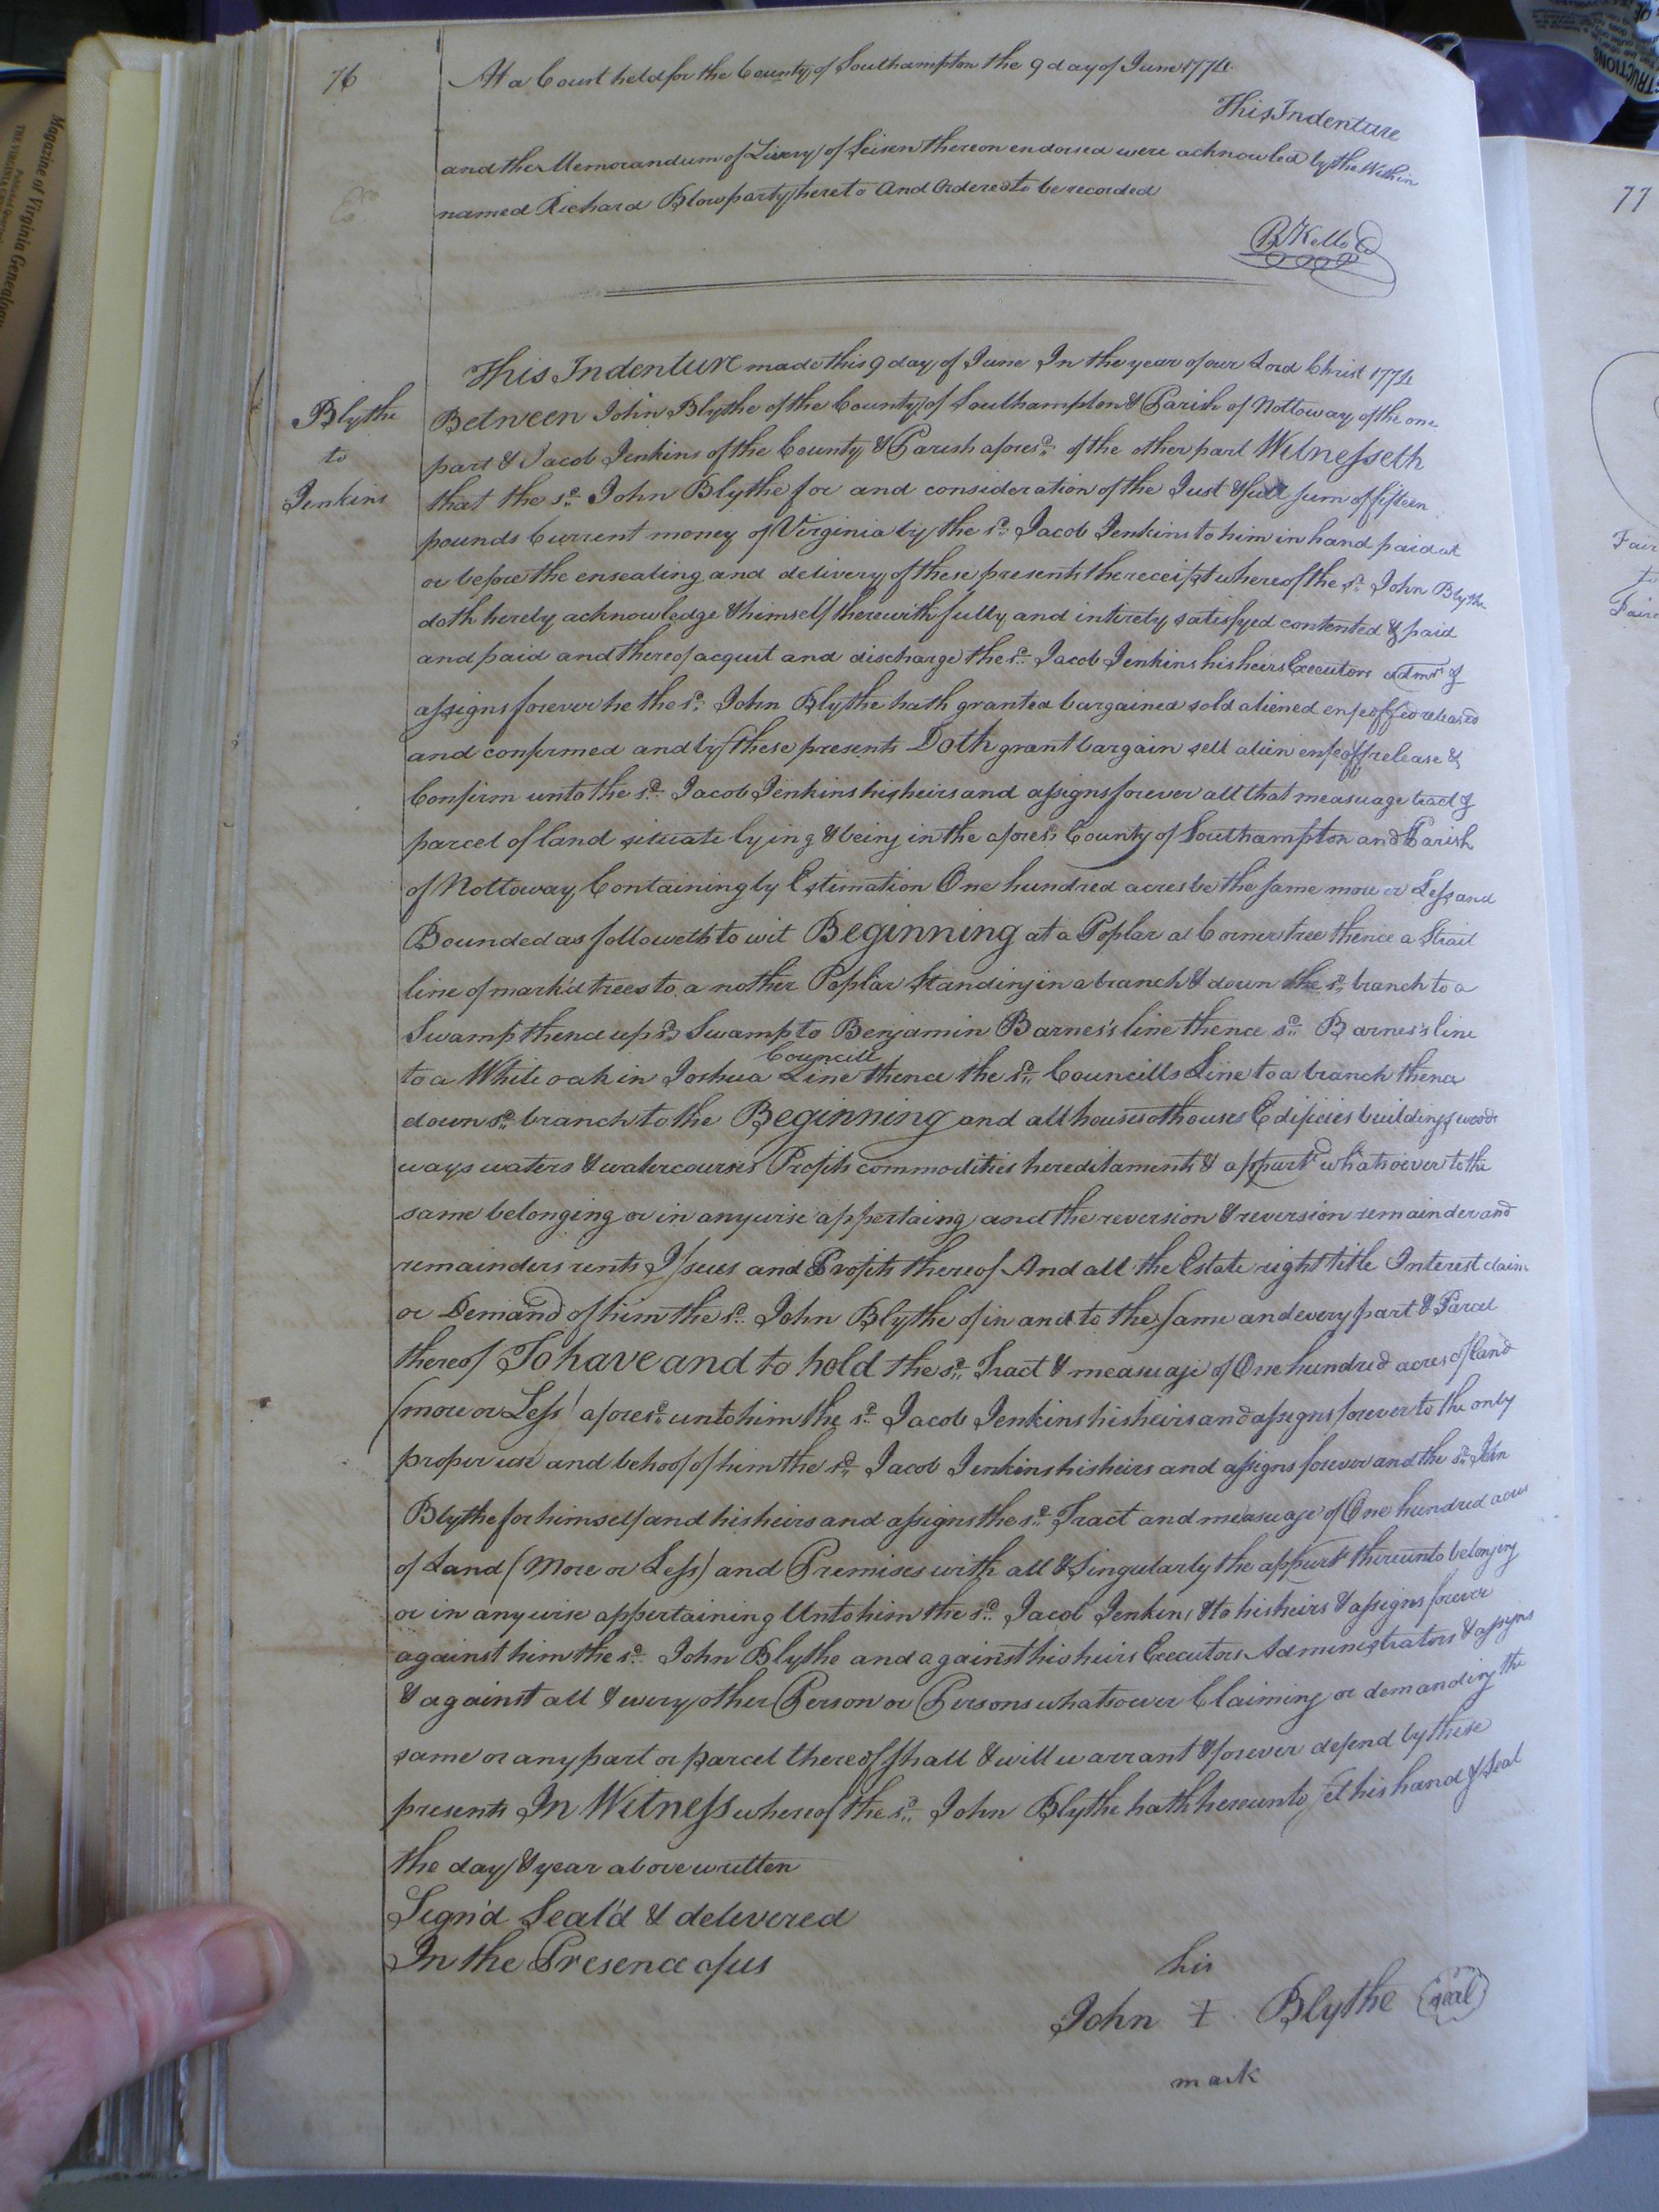 76
At a Court held for the County of Southampton the 9 day of June 1774.
This Indenture
and the Memorandum of Livery of Seisen thereon endorsed were acknowled by the Within
named Richard Blow party hereto And Ordered to be recorded
R Kello
This Indenture made this 9 day of June In the year of our Lord Christ 1774
Blythe
to
Jenkins
Between John Blythe of the County of Southampton & Parish of Nottoway of the one
part & Jacob Jenkins of the County & Parish aforesd. of the other part Witnesseth
that the sd. John Blythe for and consideration of the Just & full sum of fifteen
pounds Current money of Virginia by the sd. Jacob Jenkins to him in hand paid at
or before the ensealing and delivery of these presents the receipt whereof the sd. John Blythe
doth hereby acknowledge & himself therewith fully and intirely satisfyed contented & paid
and paid and thereof acquit and discharge the sd. Jacob Jenkins his heirs Executors Admrs &
assigns forever he the sd. John Blythe hath granted bargained sold aliened enfeoffed released
and confirmed and by these presents Doth grant bargain sell alien enfeoff release &
Confirm unto the sd. Jacob Jenkins his heirs and assigns forever all that measuage tract &
parcel of land situate lying & being in the aforesd. County of Southampton and Parish
of Nottoway Containing by Estimation One hundred acres be the same more or Less and
Bounded as followeth to wit Beginning at a Poplar a Corner tree thence a Strait
line of mark'd trees to a nother Poplar Standing in a branch & down the sd. branch to a
Swamp thence up sd. Swamp to Benjamin Barnes's line thence sd. Barnes's line
to a White oak in Joshua Councill Line thence the sd. Councills Line to a branch thence
down sd. branch to the Beginning and all houses othouses Edificies buildings woods
ways waters & watercourses Profits commodities hereditaments & appurts whatsoever to the
same belonging or in anywise appertaing and the reversion & reversion remainder and
remainders rents Issues and Profits thereof And all the Estate right title Interest claim
or Demand of him the sd. John Blythe of in and to the same and every part & Parcel
thereof To have and to hold the sd. Tract & measuage of One hundred acres of land
(more or Less) aforesd. unto him the sd. Jacob Jenkins his heirs and assigns forever to the only
proper use and behoof of him the sd. Jacob Jenkins his heirs and assigns forever and the sd. John
Blythe for himself and his heirs and assigns the sd. Tract and measuage of One hundred acres
of Land (More or Less) and Premises with all & Singularly the appurts thereunto belonging
or in anywise appertaining Unto him the sd. Jacob Jenkins & to his heirs & assigns forever
against him the sd. John Blythe and against his heirs Executors Administrators & assigns
& against all & every other Person or Persons whatsoever Claiming or demanding the
same or any part or parcel thereof shall & will warrant & forever defend by these
presents In Witness whereof the sd. John Blythe hath hereunto set his hand & Seal
the day & year above written
Sign'd Seal'd & delivered
In the Presence of us
his
John ‡ Blythe seal
mark
77
Magazine of Virginia Genealogy